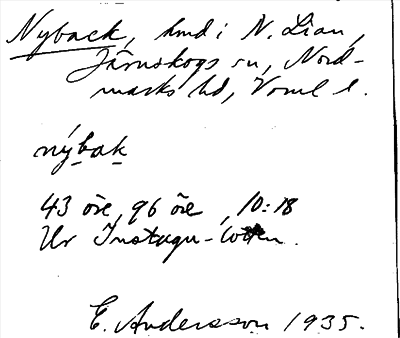 Nyback, hmd i N. Lian,
Järnskogs sn, Nord-
marks hd, Vrml l.
nýbak
43 öre, 96 öre, 10:18
Ur Instagu-
E. Andersson 1935.